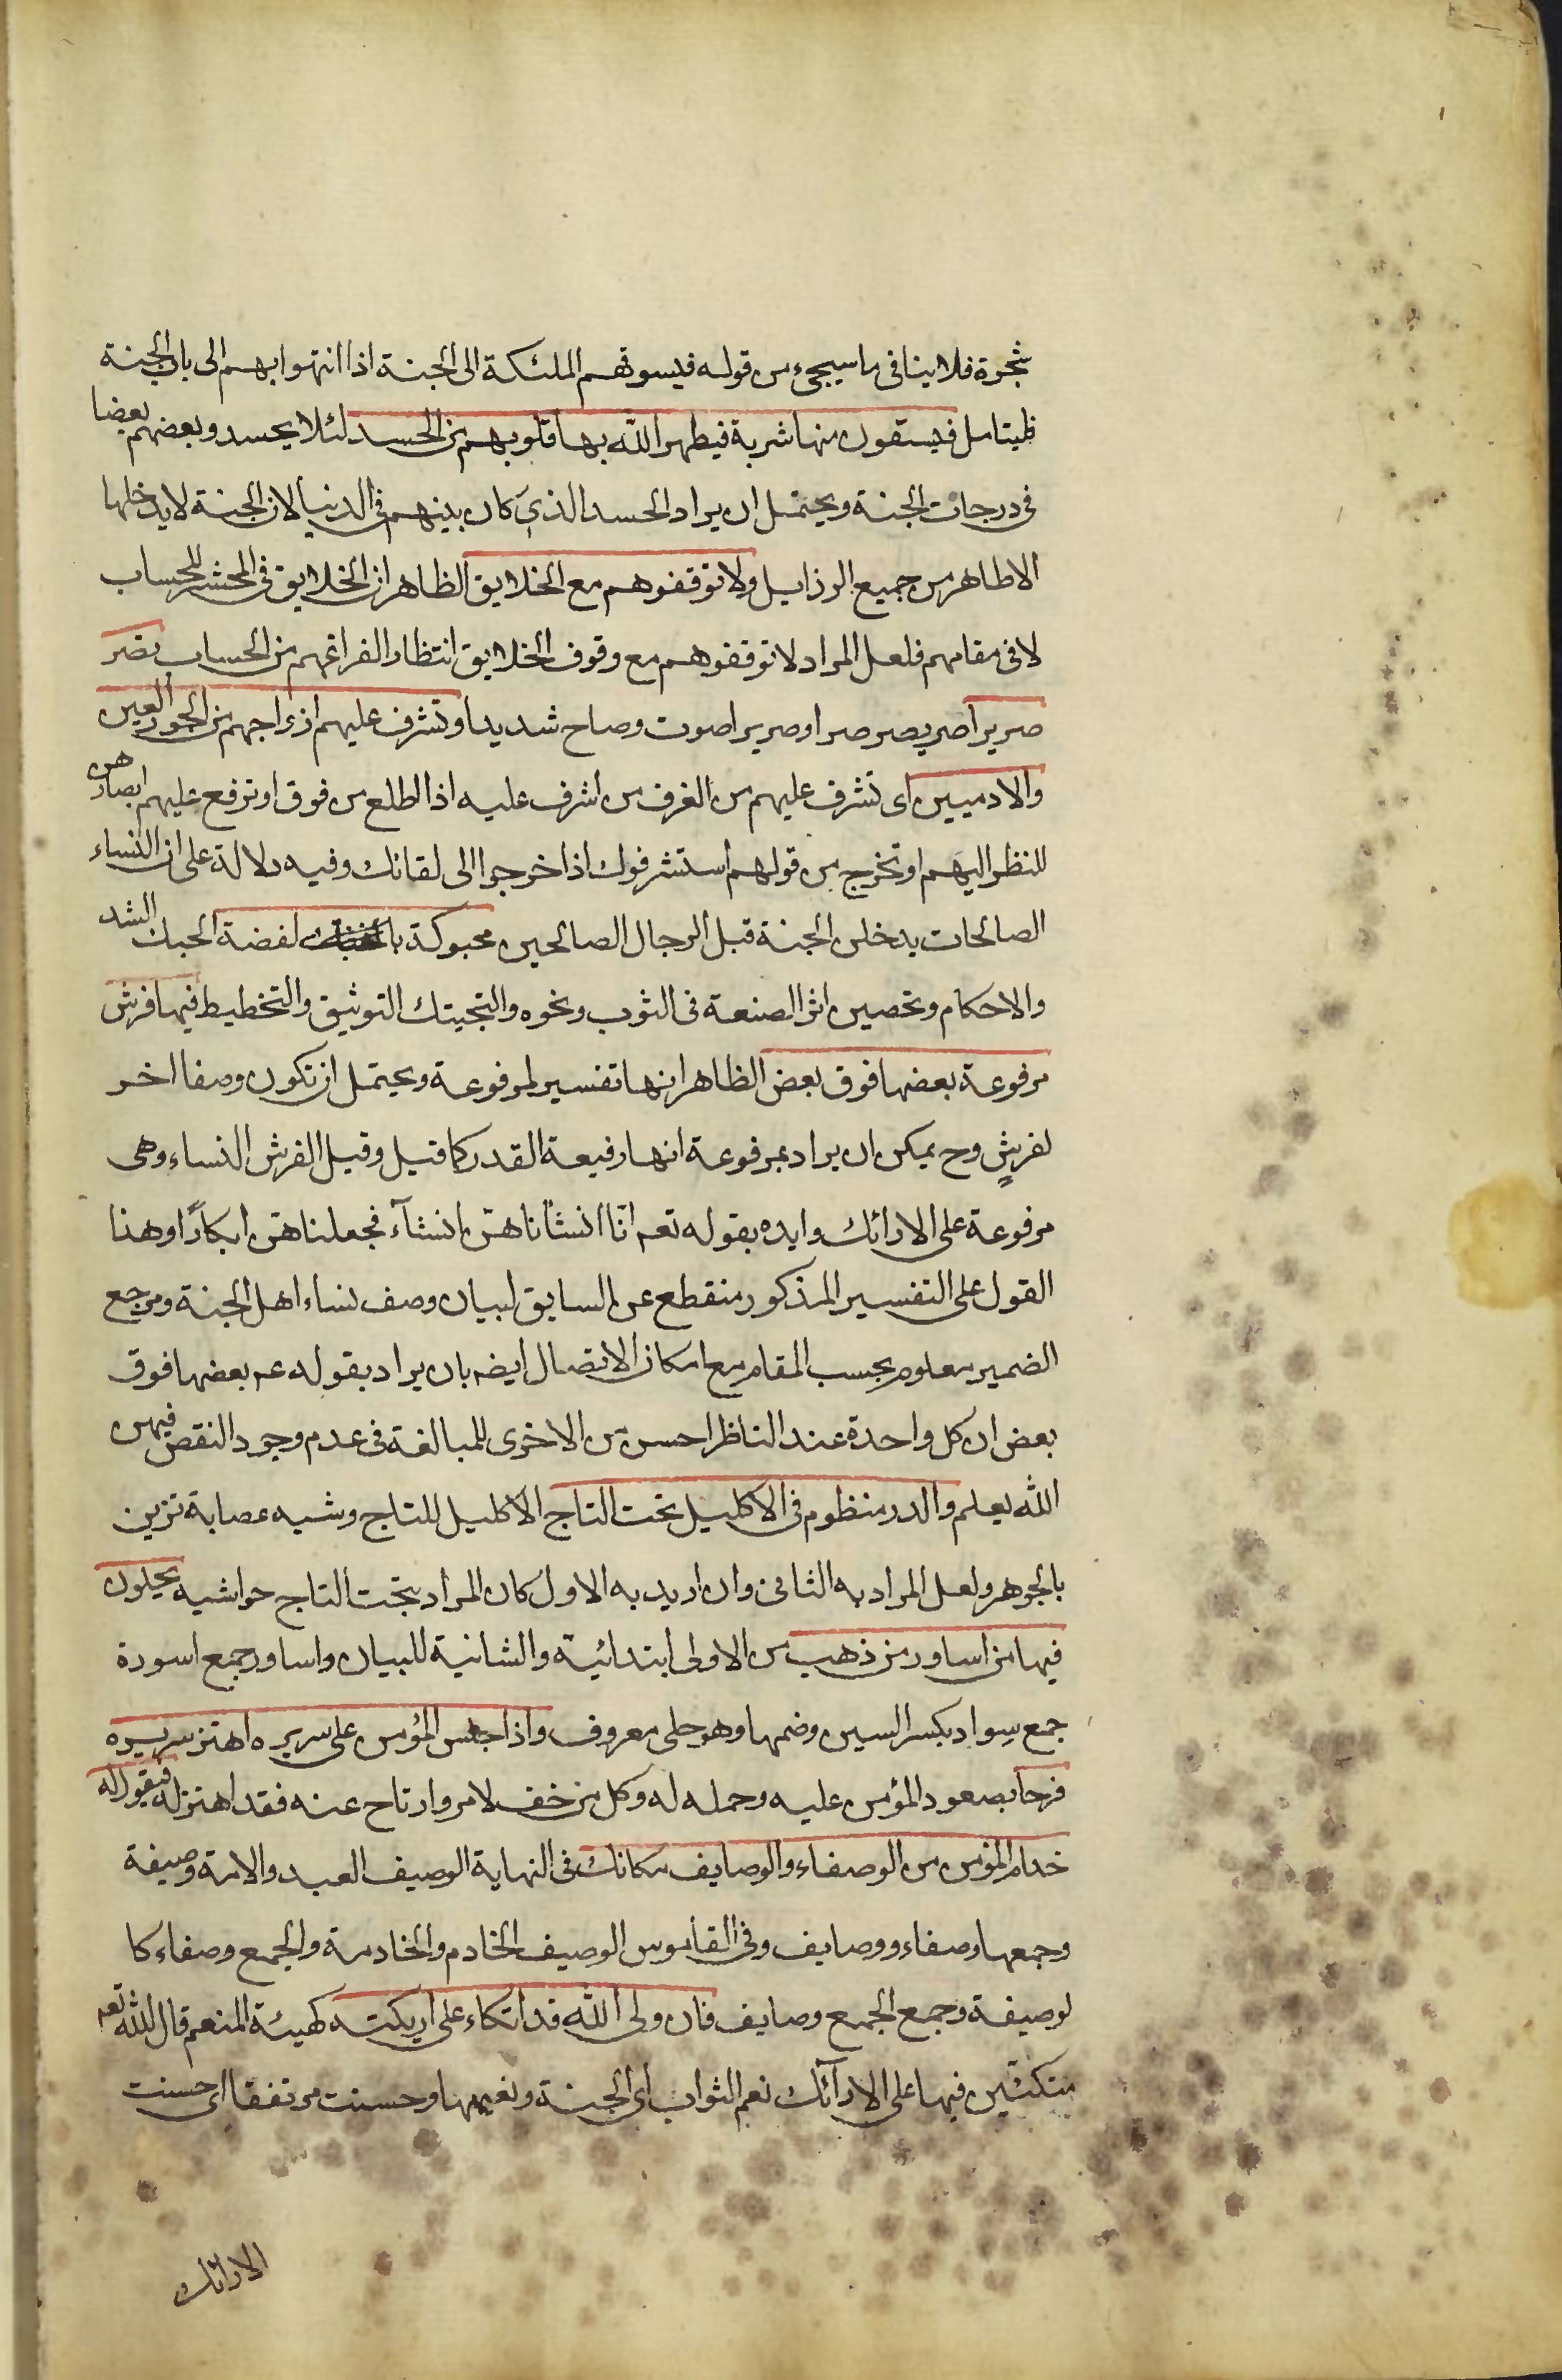 شجرة فلا ينافى ما سيجىء من قوله فيسوقهم الملئكة الى الجنة اذا انتهوا بهم الى باب الجنة
فليتامل فيسقون منها شربة فيطهر الله بها قلوبهم من الحسد لئلا يحسدو بعضهم بعضا
فى درجات الجنة ويحتمل ان يراد الحسد الذى كان بينهم فى الدنيا لان الجنة لا يدخلها
الا طاهر من جميع الرذايل ولا توقفوهم مع الخلايق الظاهر ان الخلايق فى المحشر للحساب
لا فى مقامهم فلعل المراد لا توقفوهم مع وقوف الخلايق انتظارا لفراغهم من الحساب تصر
صريرا صر يصر صرا وصريرا صوت وصاح شديدا وتشرف عليهم ازواجهم من الحور العين
والادميين اى تشرف عليهم من الغرف من اشرف عليه اذا اطلع من فوق او ترفع عليهم ابصارهن
للنظر اليهم او تخرج من قولهم استشرفوك اذا خرجوا الى لقائك وفيه دلالة على ان النساء
الصالحات يدخلن الجنة قبل الرجال الصالحين محبوكة با لفضة الحبك الشد
والاحكام وتحصين اثر الصنعة فى الثوب ونحوه والتحبيك التوثيق والتخطيط فيها فرش
مرفوعة بعضها فوق بعض الظاهر انها تفسير لمرفوعة ويحتمل ان تكون وصفا اخر
لفرشٍ وح يمكن ان يراد بمرفوعة انها رفيعة القدر كما قيل وقيل الفرش النساء وهى
مرفوعة على الارائك وايده بقوله تعم انّا انشأناهنّ انشآء فجعلناهنّ ابكارًا وهذا
القول على التفسير المذكور منقطع عن السابق لبيان وصف نساء اهل الجنة ومرجع
الضمير معلوم بحسب المقام مع امكان الاتصال ايضه بان يراد بقوله عم بعضها فوق
بعض ان كل واحدة عند الناظر احسن من الاخرى للمبالغة فى عدم وجود النقص فيهن
الله يعلم والدر منظوم فى الاكليل تحت التاج الاكليل للتاج وشبه عصابة تزين
بالجوهر ولعل المراد به الثانى وان اريد به الاول كان المراد بتحت التاج حواشيه يحلون
فيها من اساور من ذهب من الاولى ابتدائية والثانية للبيان واساور جمع اسورة
جمع سوار بكسر السين وضمها وهو حلى معروف واذا جلس المؤمن على سريره اهتز سريره
فرحا بصعود المؤمن عليه وحمله له وكل من خف لامر وارتاح عنه فقد اهتز له فيقول له
خدام المؤمن من الوصفاء والوصايف مكانك فى النهاية الوصيف العبد والامة وصيفة
وجمعها وصفاء ووصايف وفى القاموس الوصيف الخادم والخادمة والجمع وصفاء كا
لوصيفة وجمع الجمع وصايف فان ولى الله قد اتكاء على اريكته كهيئة المنعم قال الله تعم
متكئين فيها على الارآئك نعم الثواب اى الجنة ونعيمها وحسنت مرتفقا اى حسنت
الارائك